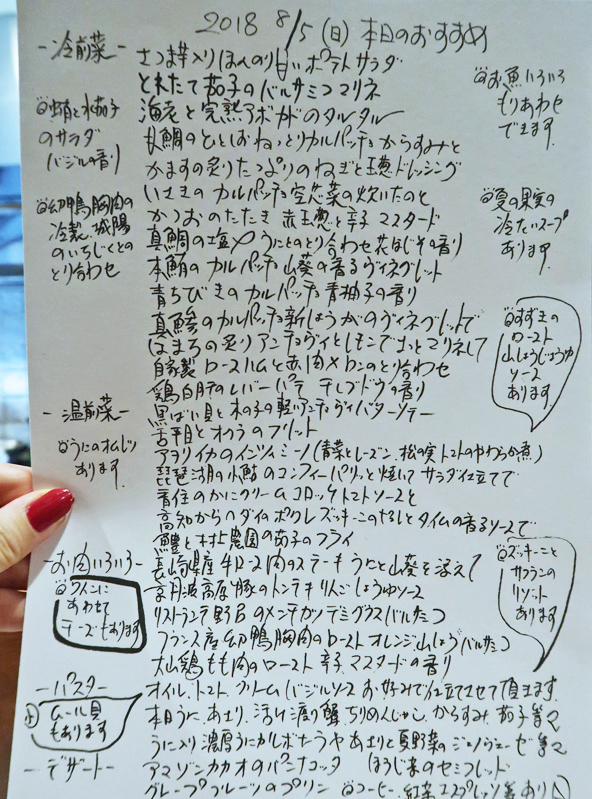 2018 8/5(日)本日のおすすめ
-冷前菜-
さつま芋入りほんのり甘いポテトサラダ
とれたて茄子のバルサミコマリネ
海老と完熟アボカドのタルタル
真鯛のカルパッチョからすみと
かますの炙りたっぷりのねぎと玉葱ドレッシング
いさきのカルパッチョ空芯菜の炊いたのと
かつおのたたき 赤玉葱と辛子マスタード
真鯛の塩〆うにとのとり合わせ花ほじその香り
本鮪のカルパッチョ山葵の香るヴィネグレット
青ちびきのカルパッチョ青柚子の香り
真鯵のカルパッチョ新しょうがのヴィネグレットで
はまちの炙りアンチョヴィとレモンでさっとマリネして
自家製ロースハムと赤肉メロンのとり合わせ
鶏白肝のレバーパテ 干しブドウの香り
蛸と水茄子
のサラダ
バジルの香り
幼鴨胸肉の
冷製 城陽
のいちじくとの
とり合わせ
お魚いろいろ
もりあわせ
できます。
夏の果実の
冷たいスープ
あります。
すずきの
ロースト
山しょうじょうゆ
ソース
あります
-温前菜-
うにのオムレツ
あります。
黒ばい貝と木の子の軽いアンチョヴィバターソテー
舌平目とオクラのフリット
アオリイカのインツィミーノ(青菜とレーズン、松の実トマトのやわらか煮)
琵琶湖の小鮎のコンフィーパリッと焼いてサラダ仕立てで
香住のかにクリームコロッケトマトソースと
鱧と村上農園の茄子のフライ
-お肉いろいろ-
ワインに
あわせて
チーズもあります
長崎県産牛ロース肉のステーキうにと山葵を添えて
京丹波高原豚のトンテキりんごしょうゆソース
リストランテ野呂のメンチカツデミグラスバルサミコ
フランス産幼鴨胸肉のロースト オレンジ山しょうバルサミコ
大山鶏もも肉のロースト 辛子マスタードの香り
ズッキーニと
サフランの
リゾット
あります
-パスタ-
ムール貝
もあります
オイル、トマト、クリーム バジルソース お好みで仕立てさせて頂きます。
本日うに、あさり、活け渡り蟹、ちりめんじゃこ、からすみ、茄子等々
うに入り濃厚うにカルボナーラや あさりと夏野菜のジェノヴェーゼ等々
-デザート-
アマゾンカカオのパンナコッタ ほうじ茶のセミフレッド
グレープフルーツのプリン コーヒー、紅茶、エスプレッソ等あり